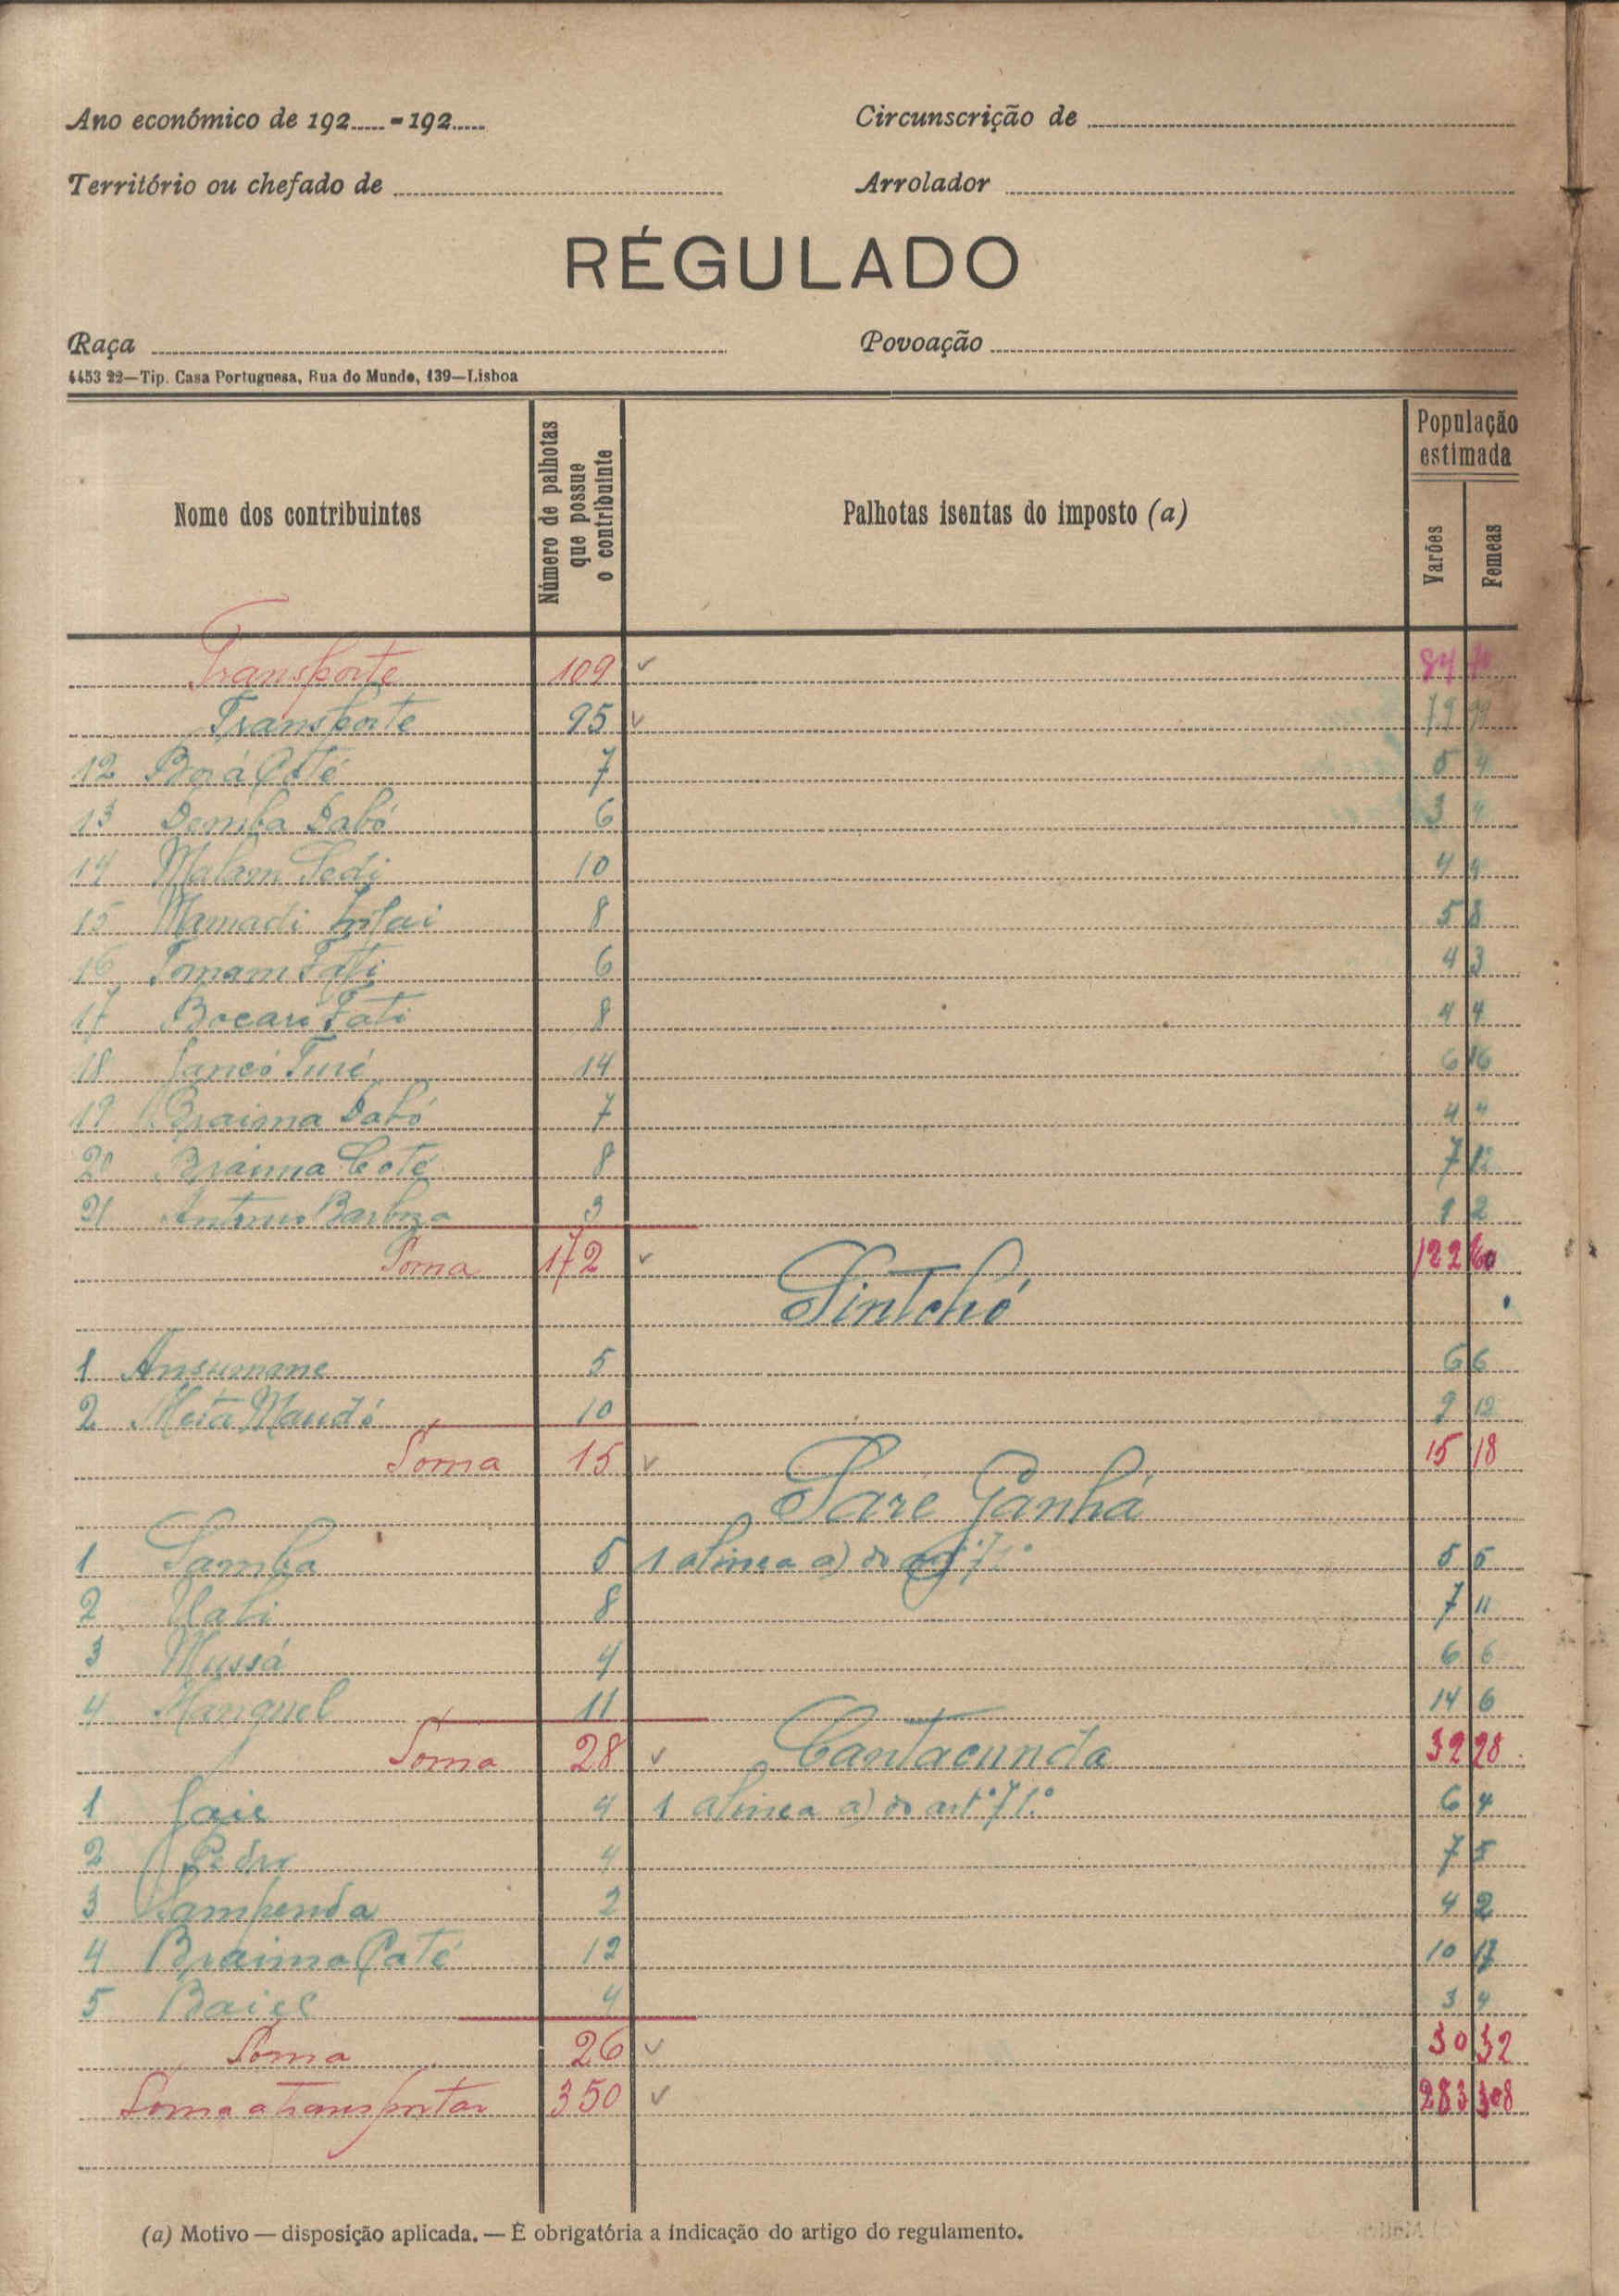 Ano económico de 192..... - 192.....
Circunscrição de
Território ou chefado de
Arrolador
RÉGULADO
Raça
Povoação
4453 22—Tip. Casa Portuguesa, Rua do Mundo, 139—Lisboa
Nome dos contribuintes
Número de palhotas que possue o contribuinte
Palhotas isentas do imposto (a)
População estimada
Varões
Femeas
Transporte 109 84
Transporte 95 79
12 7 5 4
13 Demba Dabó 6 3 4
14 Malam Sedi 10 4 4
15 Mamadi 8 5 8
16 Fati 6 4 3
17 Bocari Fati 8 4 4
18 Sancó Turé 14 6 16
19 Braima Dabó 7 4 4
20 Braima Coté 8 7 12
21 Antonio Barboza 3 1 2
Soma 172 122
Sintchó
1 Ansumane 5 6 6
2 Maudó 10 9 12
Soma 15 15 18
Sare Ganhá
1 Samba 5 1 alinea a) do 71º 5 5
2 8 7 11
3 Mussá 4 6 6
4 Manguel 11 14 6
Soma 28 Cantacunda 32 28
1 4 1 alinea a) do artº 71º 6 4
2 Pedro 4 7 5
3 2 4 2
4 Braima Paté 12 10 17
5 4 3 4
Soma 26 30 32
Soma a transportar 350 283 308
(a) Motivo — disposição aplicada. — É obrigatória a indicação do artigo do regulamento.